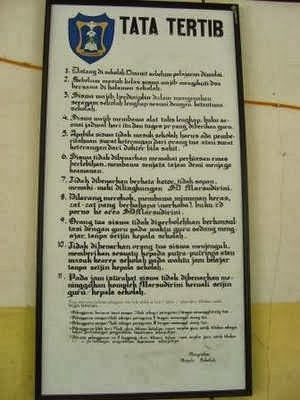 TATA TERTIB
1. Datang di sekolah 15 menit sebelum pelajaran dimulai.
2. Sebelum masuk kelas siswa wajib mengikuti doa
bersama di halaman sekolah.
3. Siswa wajib berdisiplin dalam mengenakan
seragam sekolah lengkap sesuai dengan ketentuan
sekolah.
4. Siswa wajib membawa alat tulis lengkap, buku se-
suai jadwal hari itu dan tugas pr yang diberikan guru.
5. Apabila siswa tidak masuk sekolah harus ada pembe-
ritahuan surat keterangan dari orang tua atau surat
keterangan dari dokter bila sakit.
6. Siswa tidak dibenarkan memakai perhiasan emas
berlebihan, membawa senjata tajam demi menjaga
keamanan.
7. Tidak dibenarkan berkata kotor, tidak sopan,
memaki-maki dilingkungan SD. Marsudirini.
8. Dilarang merokok, membawa minuman keras,
zat-zat yang berbahaya (narkoba), buku/cd
porno ke area SD Marsudirini.
9. Orang tua siswa tidak diperbolehkan berkonsul-
tasi dengan guru pada waktu guru sedang meng-
ajar, tanpa seijin kepala sekolah.
10. Tidak dibenarkan orang tua siswa menjenguk,
memberikan sesuatu kepada putra-putrinya atau
masuk kearea sekolah pada waktu jam belajar
tanpa seijin kepala sekolah.
11. Pada jam istirahat siswa tidak dibenarkan me-
ninggalkan komplek Marsudirini kecuali seijin
guru/kepala sekolah.
Mengetahui
Kepala Sekolah